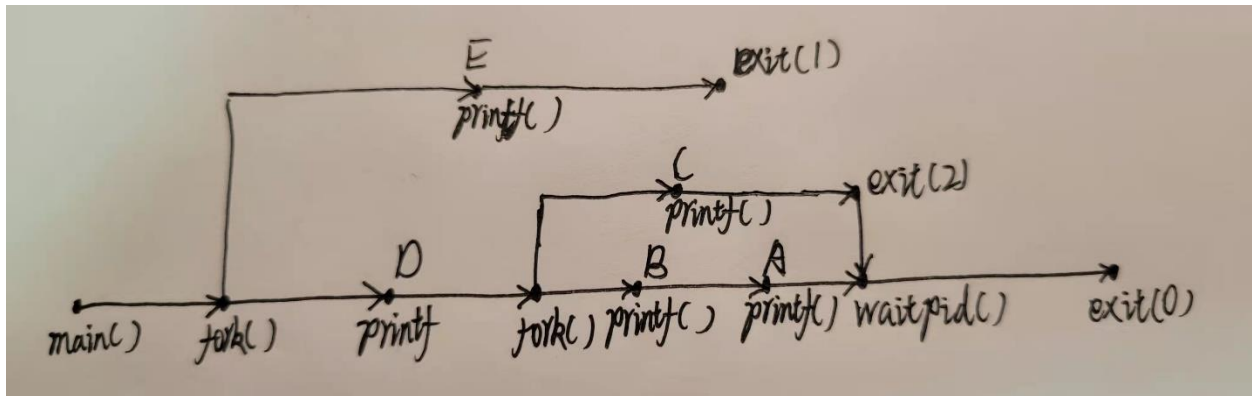 E
exit(1)
printf()
C
exit(2)
printf()
D
B
A
main()
fork()
printf
fork()
printf()
printf()
waitpid()
exit(0)